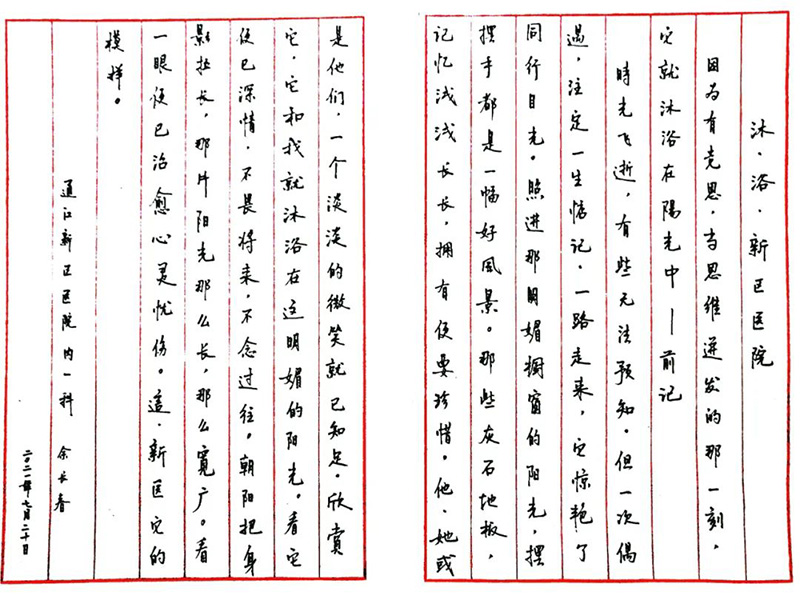 沐·浴·新区医院
因为有竞思，当思维迸发的那一刻，
它就沐浴在陽光中—前记
時光飞逝，有些无法预知。但一次偶
遇，注定一生惦记．一路走来，它惊艳了
同行目光。照进那明媚橱窗的阳光，摆
摆手都是一幅好風景。那些灰石地板，
记忆浅浅长长，拥有便要珍惜。他．她或
是他们，一个淡淡的微笑就已知足．欣赏
它．它和我就沐浴在这明媚的阳光。看它
便已深情．不畏将来，不念过往。朝阳把身
影拉长，那片阳光那么长，那么寬广。看
一眼便已治愈心灵忧伤。這．新区它的
模样。
通江新区医院 内一科 余长春
二〇二一年七月二十日